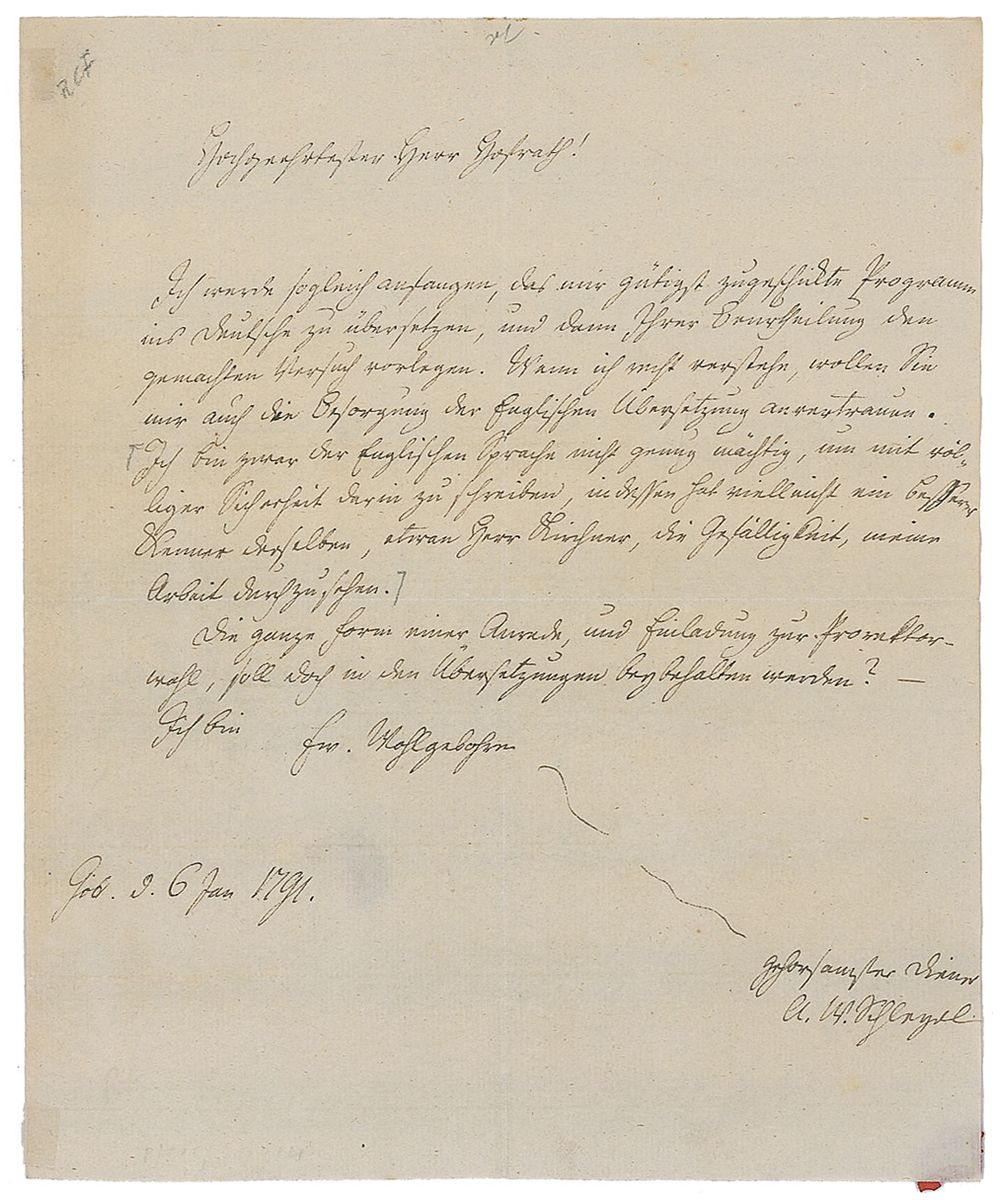 Hochgeehrtester Herr Hofrath!
Ich werde sogleich anfangen, das mir gütigst zugeschickte Programm
ins Deutsche zu übersetzen, und dann Ihrer Beurtheilung den
gemachten Versuch vorlegen. Wenn ich recht verstehe, wollen Sie
mir auch die Besorgung der Englischen Übersetzung anvertrauen.
Ich bin zwar der Englischen Sprache nicht genug mächtig, um mit völ-
liger Sicherheit darin zu schreiben, indessen hat vielleicht ein besserer
Kenner derselben, etwan Herr Kirchner, die Gefälligkeit, meine
Arbeit durchzusehen.
Die ganze Form einer Anrede, und Einladung zur Prorektor-
wahl, soll doch in den Übersetzungen beybehalten werden? —
Ich bin
Ew. Wohlgebohren
Göt. d. 6 Jan 1791.
gehorsamster Diener
A. W. Schlegel.